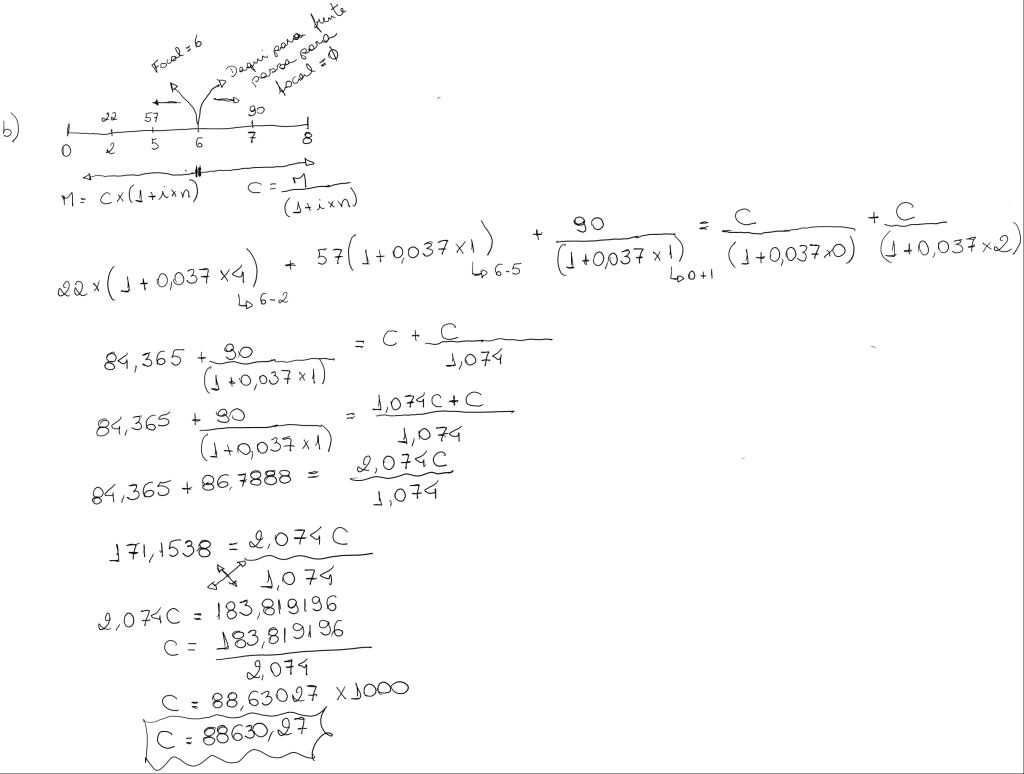 b)
Focal = 6
Daqui para frente
passa para
focal = Ø
22 57 90
0 2 5 6 7 8
M = C×(1+i×n)
C = M/(1+i×n)
22×(1+0,037×4) + 57(1+0,037×1) + 90/(1+0,037×1) = C/(1+0,037×0) + C/(1+0,037×2)
↳ 6-2 ↳ 6-5 ↳ 0+1
84,365 + 90/(1+0,037×1) = C + C/1,074
84,365 + 90/(1+0,037×1) = 1,074C + C/1,074
84,365 + 86,7888 = 2,074C/1,074
171,1538 = 2,074C/1,074
2,074C = 183,819196
C = 183,819196/2,074
C = 88,63027 ×1000
C = 88630,27